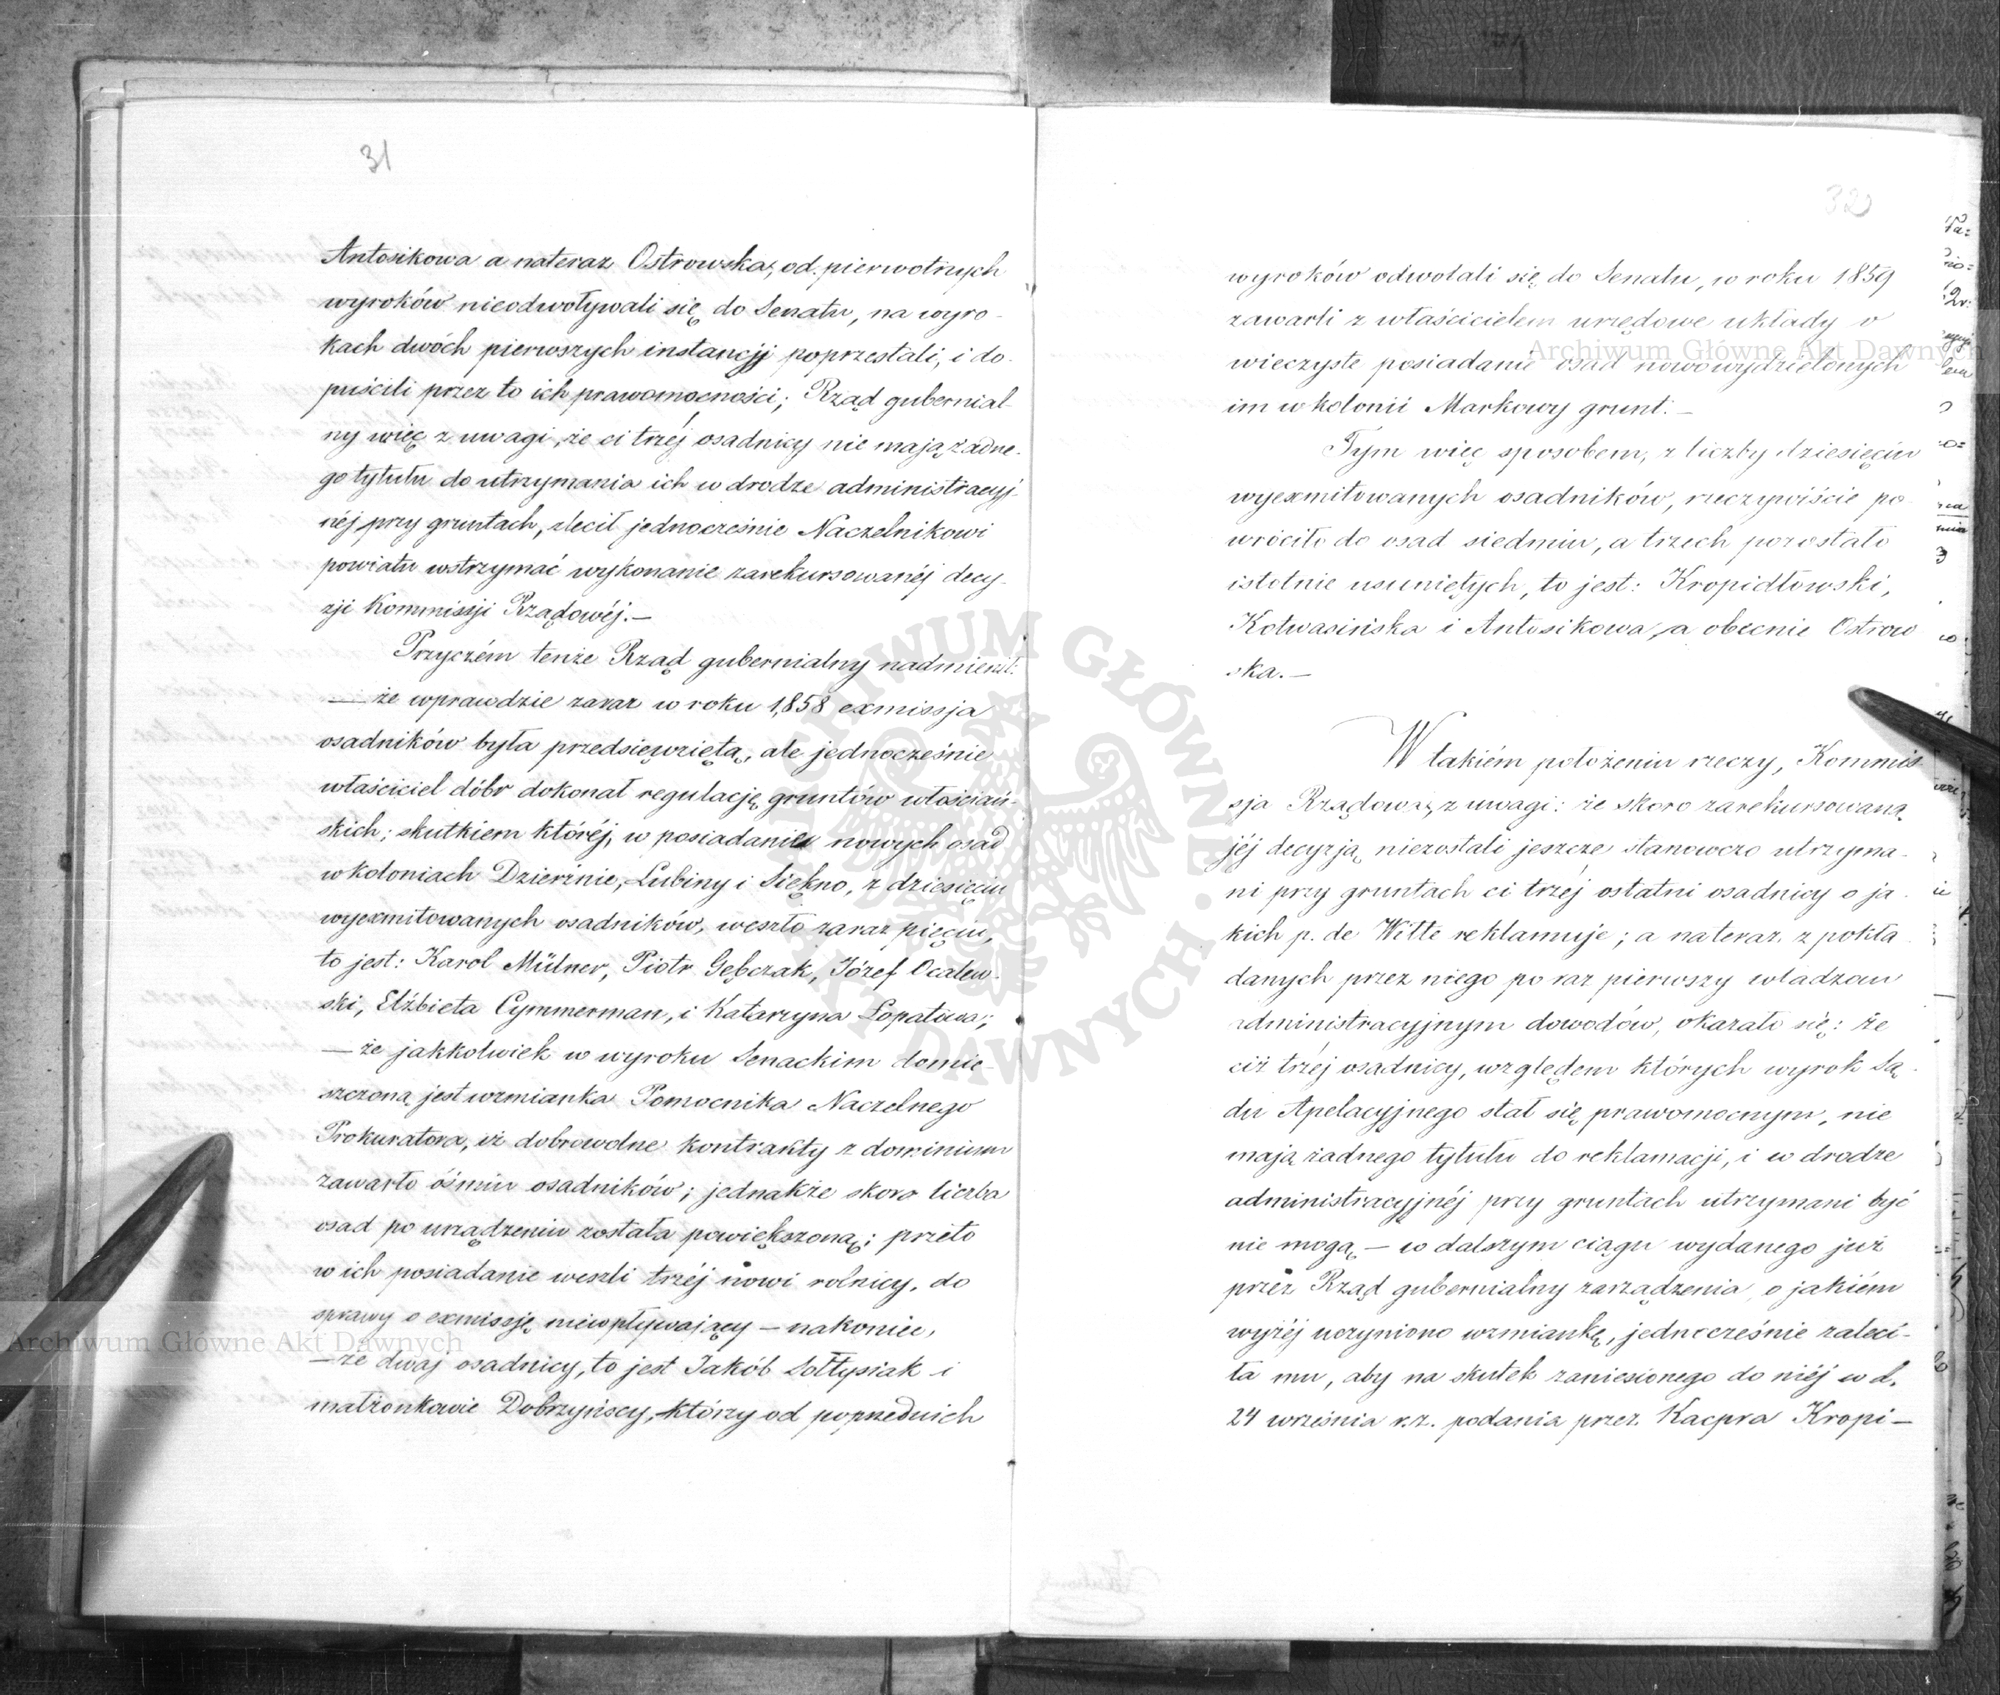 31
Antosikowa a nateraz Ostrowska, od pierwotnych
wyroków nieodwoływali się do Senatu, na wyro-
kach dwóch pierwszych instancji poprzestali, i do-
puścili przez to ich prawomocności; Rząd gubernial-
ny więc z uwagi, że ci trzéj osadnicy nie mają żadne-
go tytułu do utrzymania ich w drodze administracyj-
néj przy gruntach, zlecił jednocześnie Naczelnikowi
powiatu wstrzymać wykonanie zarekursowanéj decy-
zji Kommissji Rządowéj.—
Przyczém tenże Rząd gubernialny nadmienił:
— że wprawdzie zaraz w roku 1858 exmissja
osadników była przedsięwziętą, ale jednocześnie
właściciel dóbr dokonał regulację gruntów włościań-
skich; skutkiem któréj, w posiadanie nowych osad
w koloniach Dzierżnie, Lubiny i Siękno, z dziesięciu
wyexmitowanych osadników, weszło zaraz pięciu,
to jest: Karol Mülner, Piotr Gębczak, Józef Ocalew-
ski, Elżbieta Cymmerman, i Katarzyna Łopatowa;
— że jakkolwiek w wyroku Senackim domie-
szczoną jest wzmianka Pomocnika Naczelnego
Prokuratora, iż dobrowolne kontrakty z dominium
zawarło óśmiu osadników; jednakże skoro liczba
osad po urządzeniu została powiększoną; przeto
w ich posiadanie weszli trzéj nowi rolnicy, do
sprawy o exmissję niewpływający — nakoniec,
— że dwaj osadnicy, to jest Jakób Sołtysiak i
małżonkowie Dobrzyńscy, którzy od poprzednich
32
wyroków odwołali się do Senatu, w roku 1859
zawarli z właścicielem urzędowe układy o
wieczyste posiadanie osad nowowydzielonych
im w kolonii Markowy grunt.—
Tym więc sposobem, z liczby dziesięciu
wyexmitowanych osadników, rzeczywiście po-
wróciło do osad siedmiu, a trzech pozostało
istotnie usuniętych, to jest: Kropidłowski,
Kolwasińska i Antosikowa, a obecnie Ostrow
ska.—
W takiém położeniu rzeczy, Kommis-
sja Rządowa, z uwagi: że skoro zarekursowaną
jéj decyzją niezostali jeszcze stanowczo utrzyma-
ni przy gruntach ci trzéj ostatni osadnicy o ja-
kich p. de Witte reklamuje; a nateraz z pokła
danych przez niego po raz pierwszy władzom
administracyjnym dowodów, okazało się: że
ciż trzéj osadnicy, względem których wyrok Są-
du Apelacyjnego stał się prawomocnym, nie
mają żadnego tytułu do reklamacji, i w drodze
administracyjnéj przy gruntach utrzymani być
nie mogą — w dalszym ciągu wydanego już
przez Rząd gubernialny zarządzenia, o jakiém
wyżéj uczyniono wzmiankę, jednocześnie zaleci-
ła mu, aby na skutek zaniesionego do niéj w d.
24 września r.z. podania przez Kacpra Kropi—
Archiwum Główne Akt Dawnych
Archiwum Główne Akt Dawnych
ARCHIWUM GŁÓWNE AKT DAWNYCH